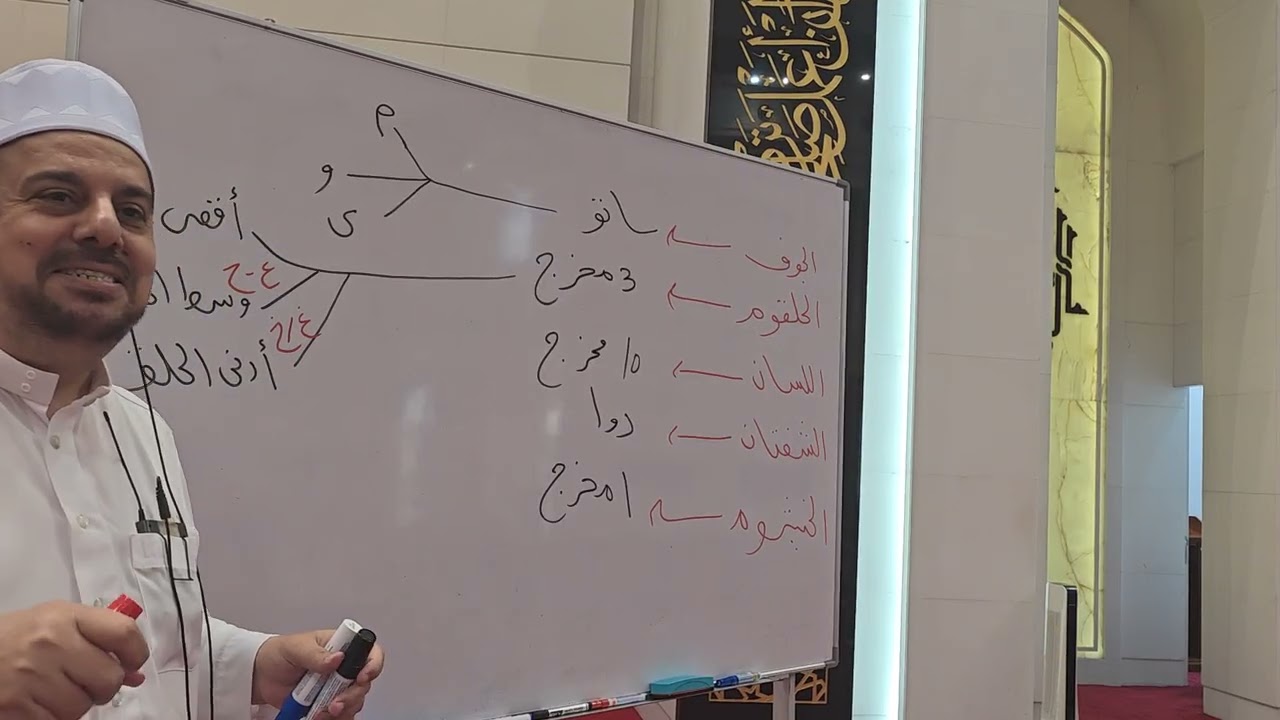 الجوف ← ساتو
م
و
ى
الحلقوم ← 3 مخرج
أقصى
ع-ح
وسط ا
غ/خ
أدنى الحلق
اللسان ← 10 مخرج
الشفتان ← دوا
الخيشوم ← 1 مخرج